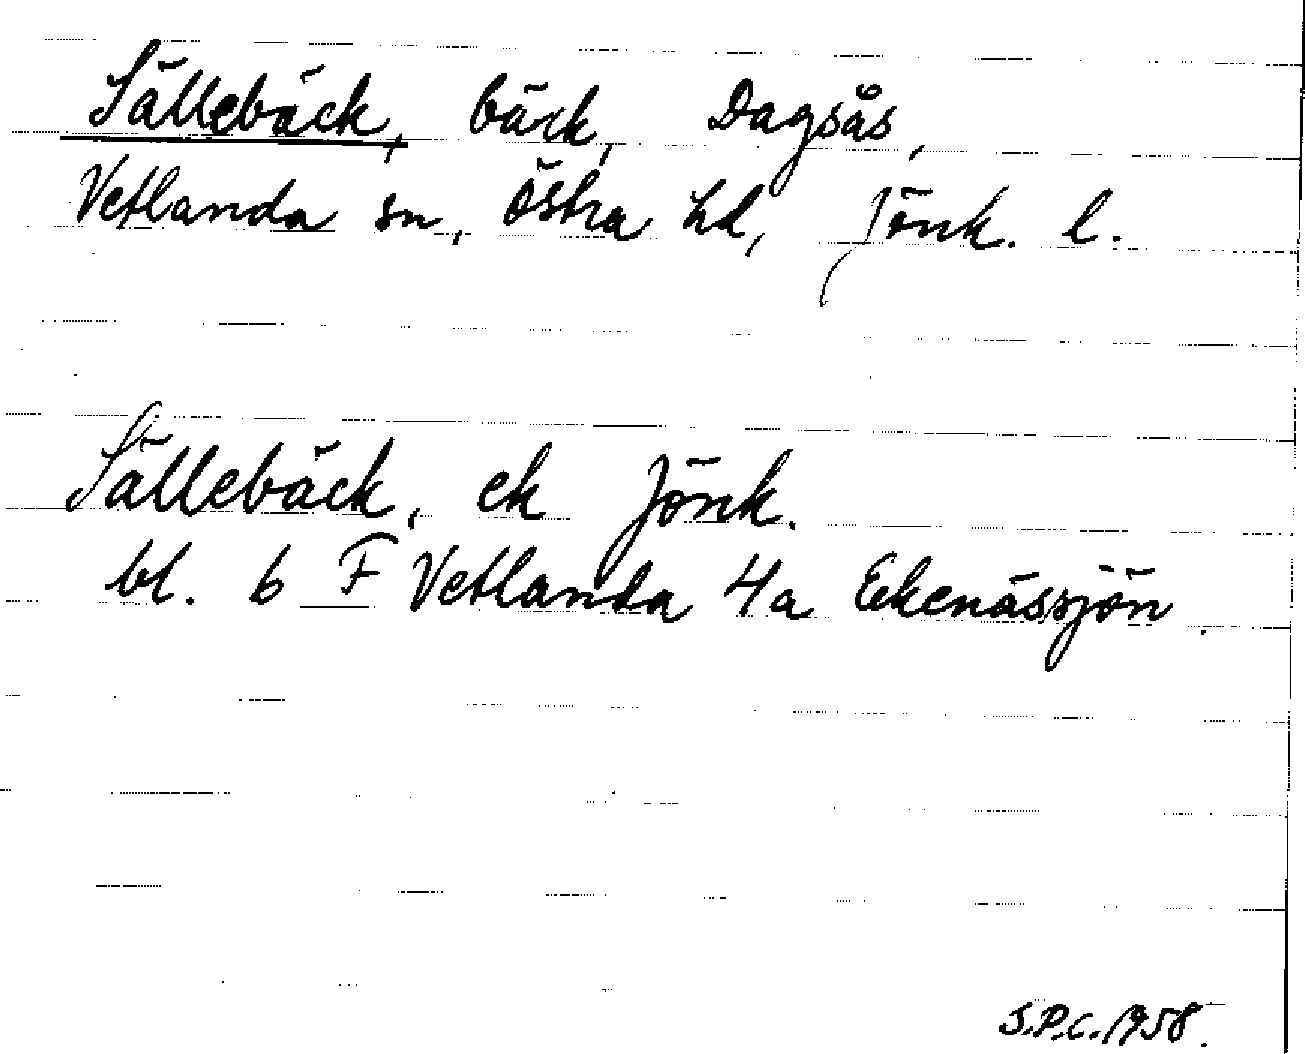 Sällebäck, bäck, Dagsås,
Vetlanda sn, Östra hd, Jönk. l.
Sällebäck, ek Jönk.
bl. 6 F Vetlanda 4a Ekenässjön.
S.P.C. 1958.